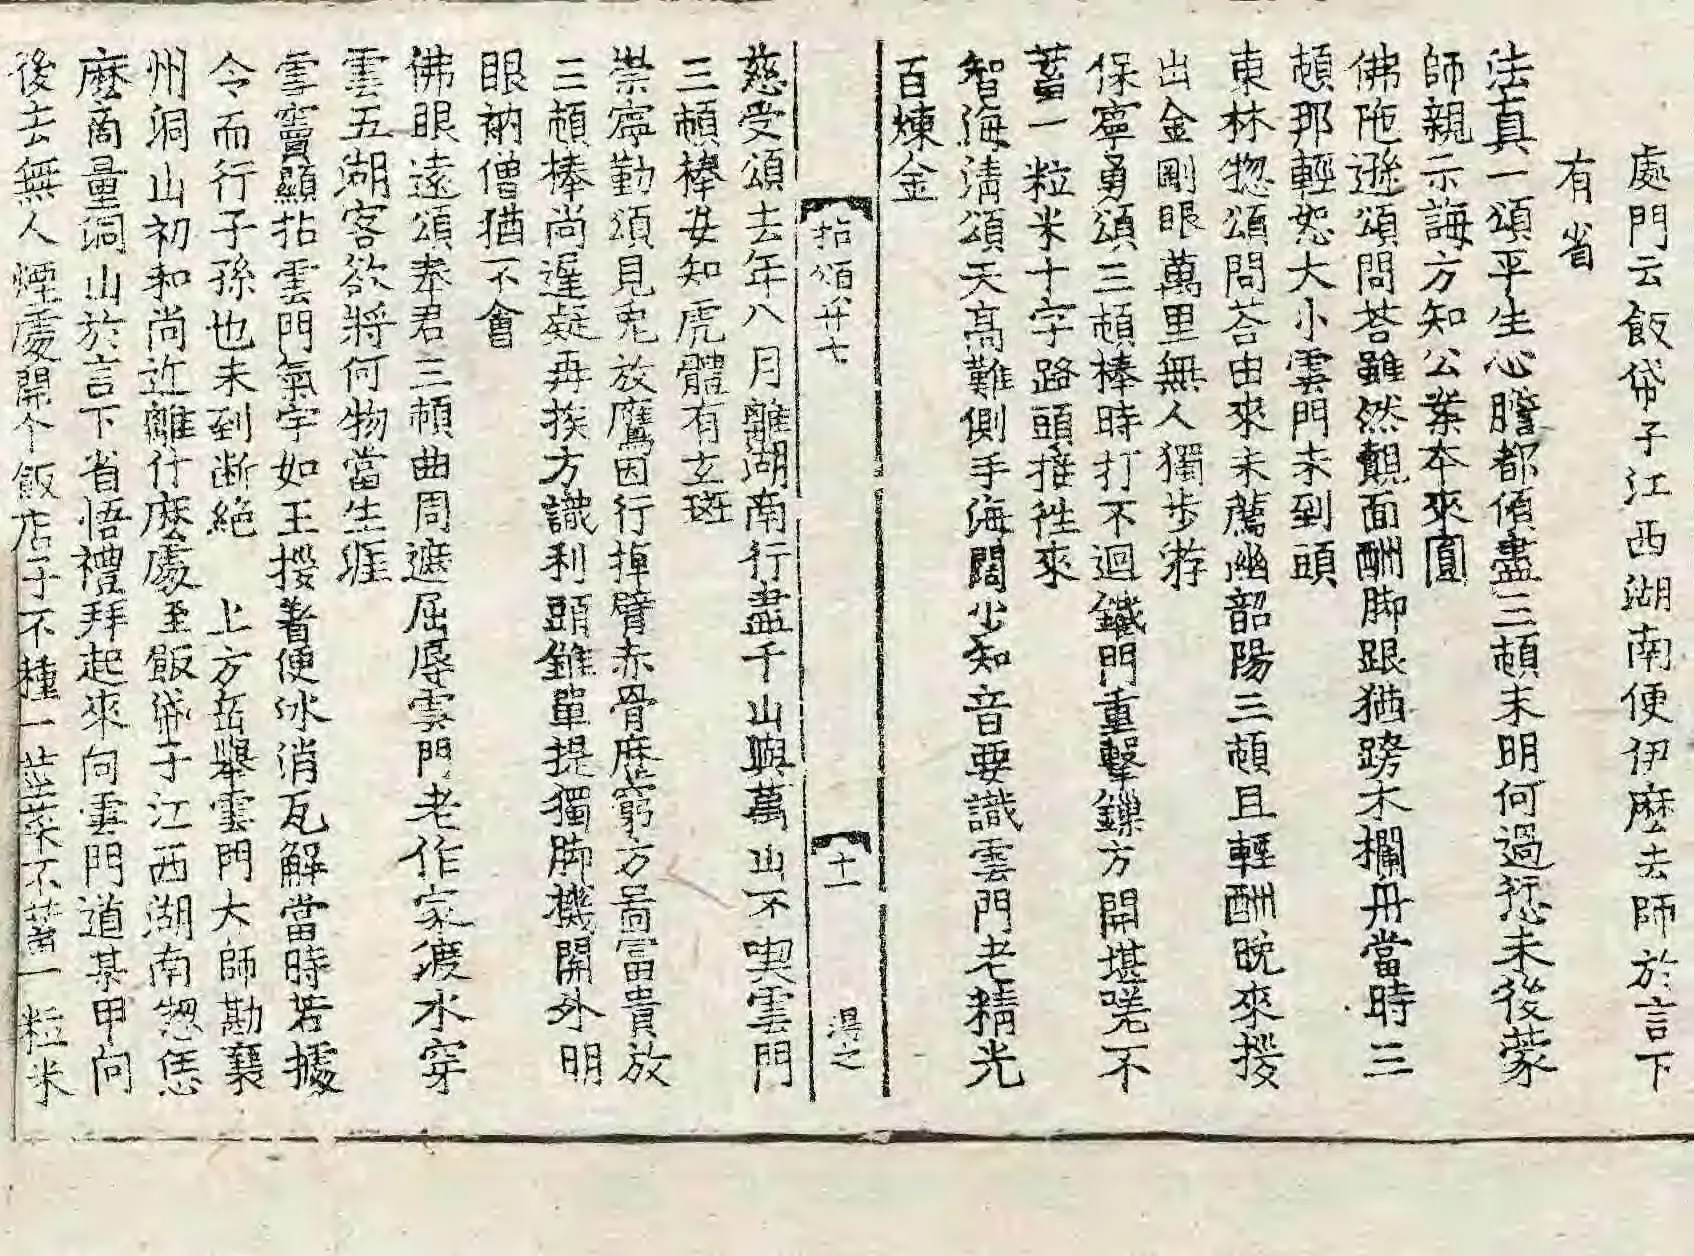 處門云飯帒子江西湖南便伊麽去師於言下
有省
法真一頌平生心膽都傾盡三頓未明何過愆末後蒙
師親示誨方知公案本來圓
佛陁遜頌問荅雖然覿面酬脚跟猶跨木欄丹當時三
頓那輕恕大小雲門未到頭
東林惣頌問荅由來未薦幽韶陽三頓且輕酬晚來撥
出金剛眼萬里無人獨步遊
保寧勇頌三頓棒時打不迴鐵門重擊鏁方開堪嗟不
蓄一粒米十字路頭推徃來
智海淸頌天高難側手海闊少知音要識雲門老精光
百煉金
拈頌廿七
十一
淂之
慈受頌去年八月離湖南行盡千山與萬山不喫雲門
三頓棒安知虎體有玄斑
崇寧勤頌見兎放鷹因行掉臂赤骨歷窮方啚富貴放
三頓棒尚遲疑再挨方識利頭錐單提獨脚機關外明
眼衲僧猶不會
佛眼遠頌奉君三頓曲周遮屈辱雲門老作家渡水穿
雲五湖客欲將何物當生涯
雪竇顯拈雲門氣宇如王拶着便冰消瓦解當時若據
令而行子孫也未到断絶　上方岳擧雲門大師勘襄
州洞山初和尚近離什麽處至飯帒子江西湖南惣恁
麽商量洞山於言下省悟禮拜起來向雲門道某甲向
後去無人煙處開个飯店子不種一莖菜不蓄一粒米